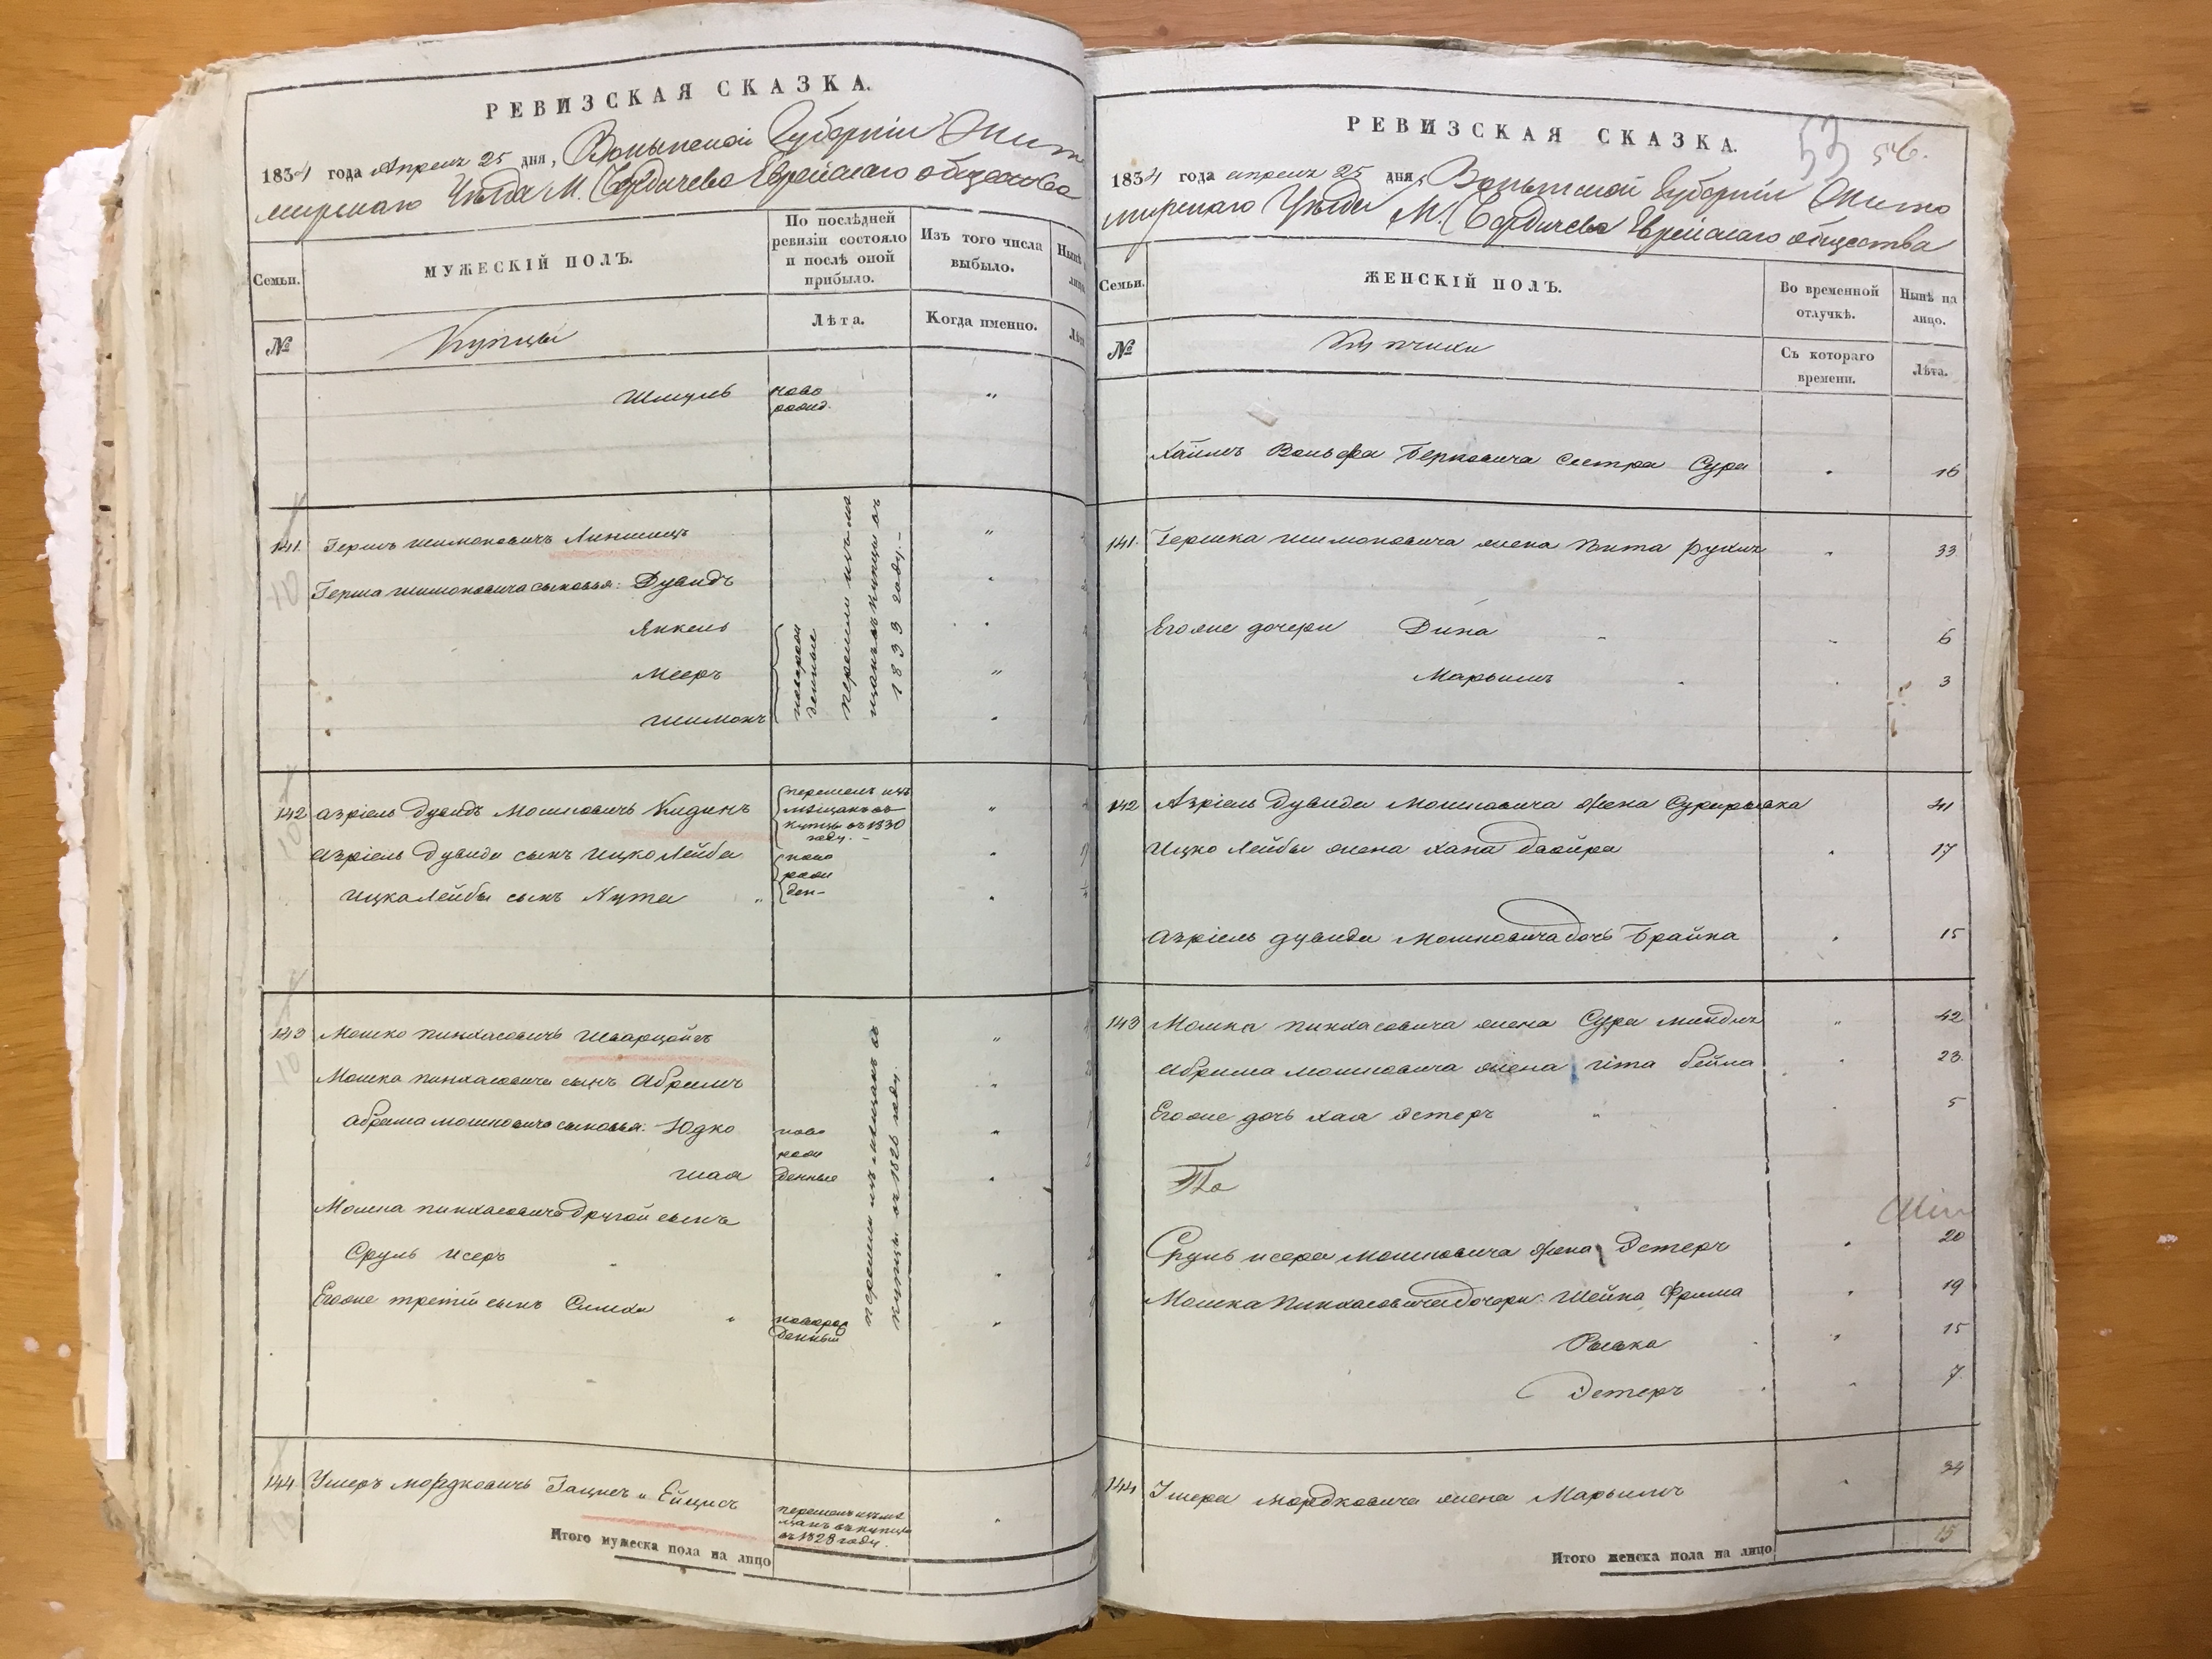 РЕВИЗСКАЯ СКАЗКА.
1834 года Апреля 25 дня, Волынской Губерніи Жито
мирскаго Уѣзда М. Бердичева Еврейскаго общества
Семьи.
МУЖЕСКІЙ ПОЛЪ.
По послѣдней
ревизіи состояло
и послѣ оной
прибыло.
Изъ того числа
выбыло.
Нынѣ
лицо
№
Купцы
Лѣта.
Когда именно.
Лѣт
Шмуль
ново
рожд.
141.
Гершъ Шимоновичъ
Герша Шимоновича сыновья: Дувидъ
Янкель
новорож
денные
Мееръ
Шимонъ
перешли изъ мѣ
щанъ въ купцы въ
1833 году.-
142
Азріель Дувидъ Мошковичъ Кидинъ
перешелъ изъ
мѣщанъ въ
купцы въ 1830
году.-
Азріель Дувида сынъ Ицко Лейба
ново
рож
ден-
Ицка Лейбы сынъ Нута
143
Мошко Пинхасовичъ
Мошка Пинхасовича сынъ Абрамъ
Абрама Мошковича сыновья: Юдко
ново
рож
Шая
денные
Мошка Пинхасовича другой сынъ
Сруль Исеръ
Егоже третій сынъ Симха
новорож
денный
перешли изъ мѣщанъ въ
купцы въ 1826 году.
144
Ушеръ Мордковичъ
перешелъ изъ мѣ
щанъ въ купцы
въ 1828 году.
Итого мужеска пола на лицо
РЕВИЗСКАЯ СКАЗКА.
53 56.
1834 года апреля 25 дня, Волынской Губерніи Жито
мирскаго Уѣзда М. Бердичева Еврейскаго общества
Семьи.
ЖЕНСКІЙ ПОЛЪ.
Во временной
отлучкѣ.
Нынѣ на
лицо.
№
Купчихи
Съ котораго
времени.
Лѣта.
Вольфа Берковича сестра Сура 16
141. Гершка Шимоновича жена Рухля 33.
Егоже дочери Дина 6
Марьямъ 3
142 Азріель Дувида Мошковича жена 41
Ицко Лейбы жена Хана Двойра 17
Азріель Дувида Мошковича дочь Брайна 15
143 Мошка Пинхасовича жена Сура Миндля 42
Абрама Мошковича жена Гита Бейла 23.
Егоже дочь Хая Эстеръ 5
Сруль Исера Мошковича жена Эстеръ 20
Мошка Пинхасовича дочери: Шейна Фрима 19
15
Эстеръ 7.
144 Ушера Мордковича жена Марьямъ 34
Итого женска пола на лицо 15